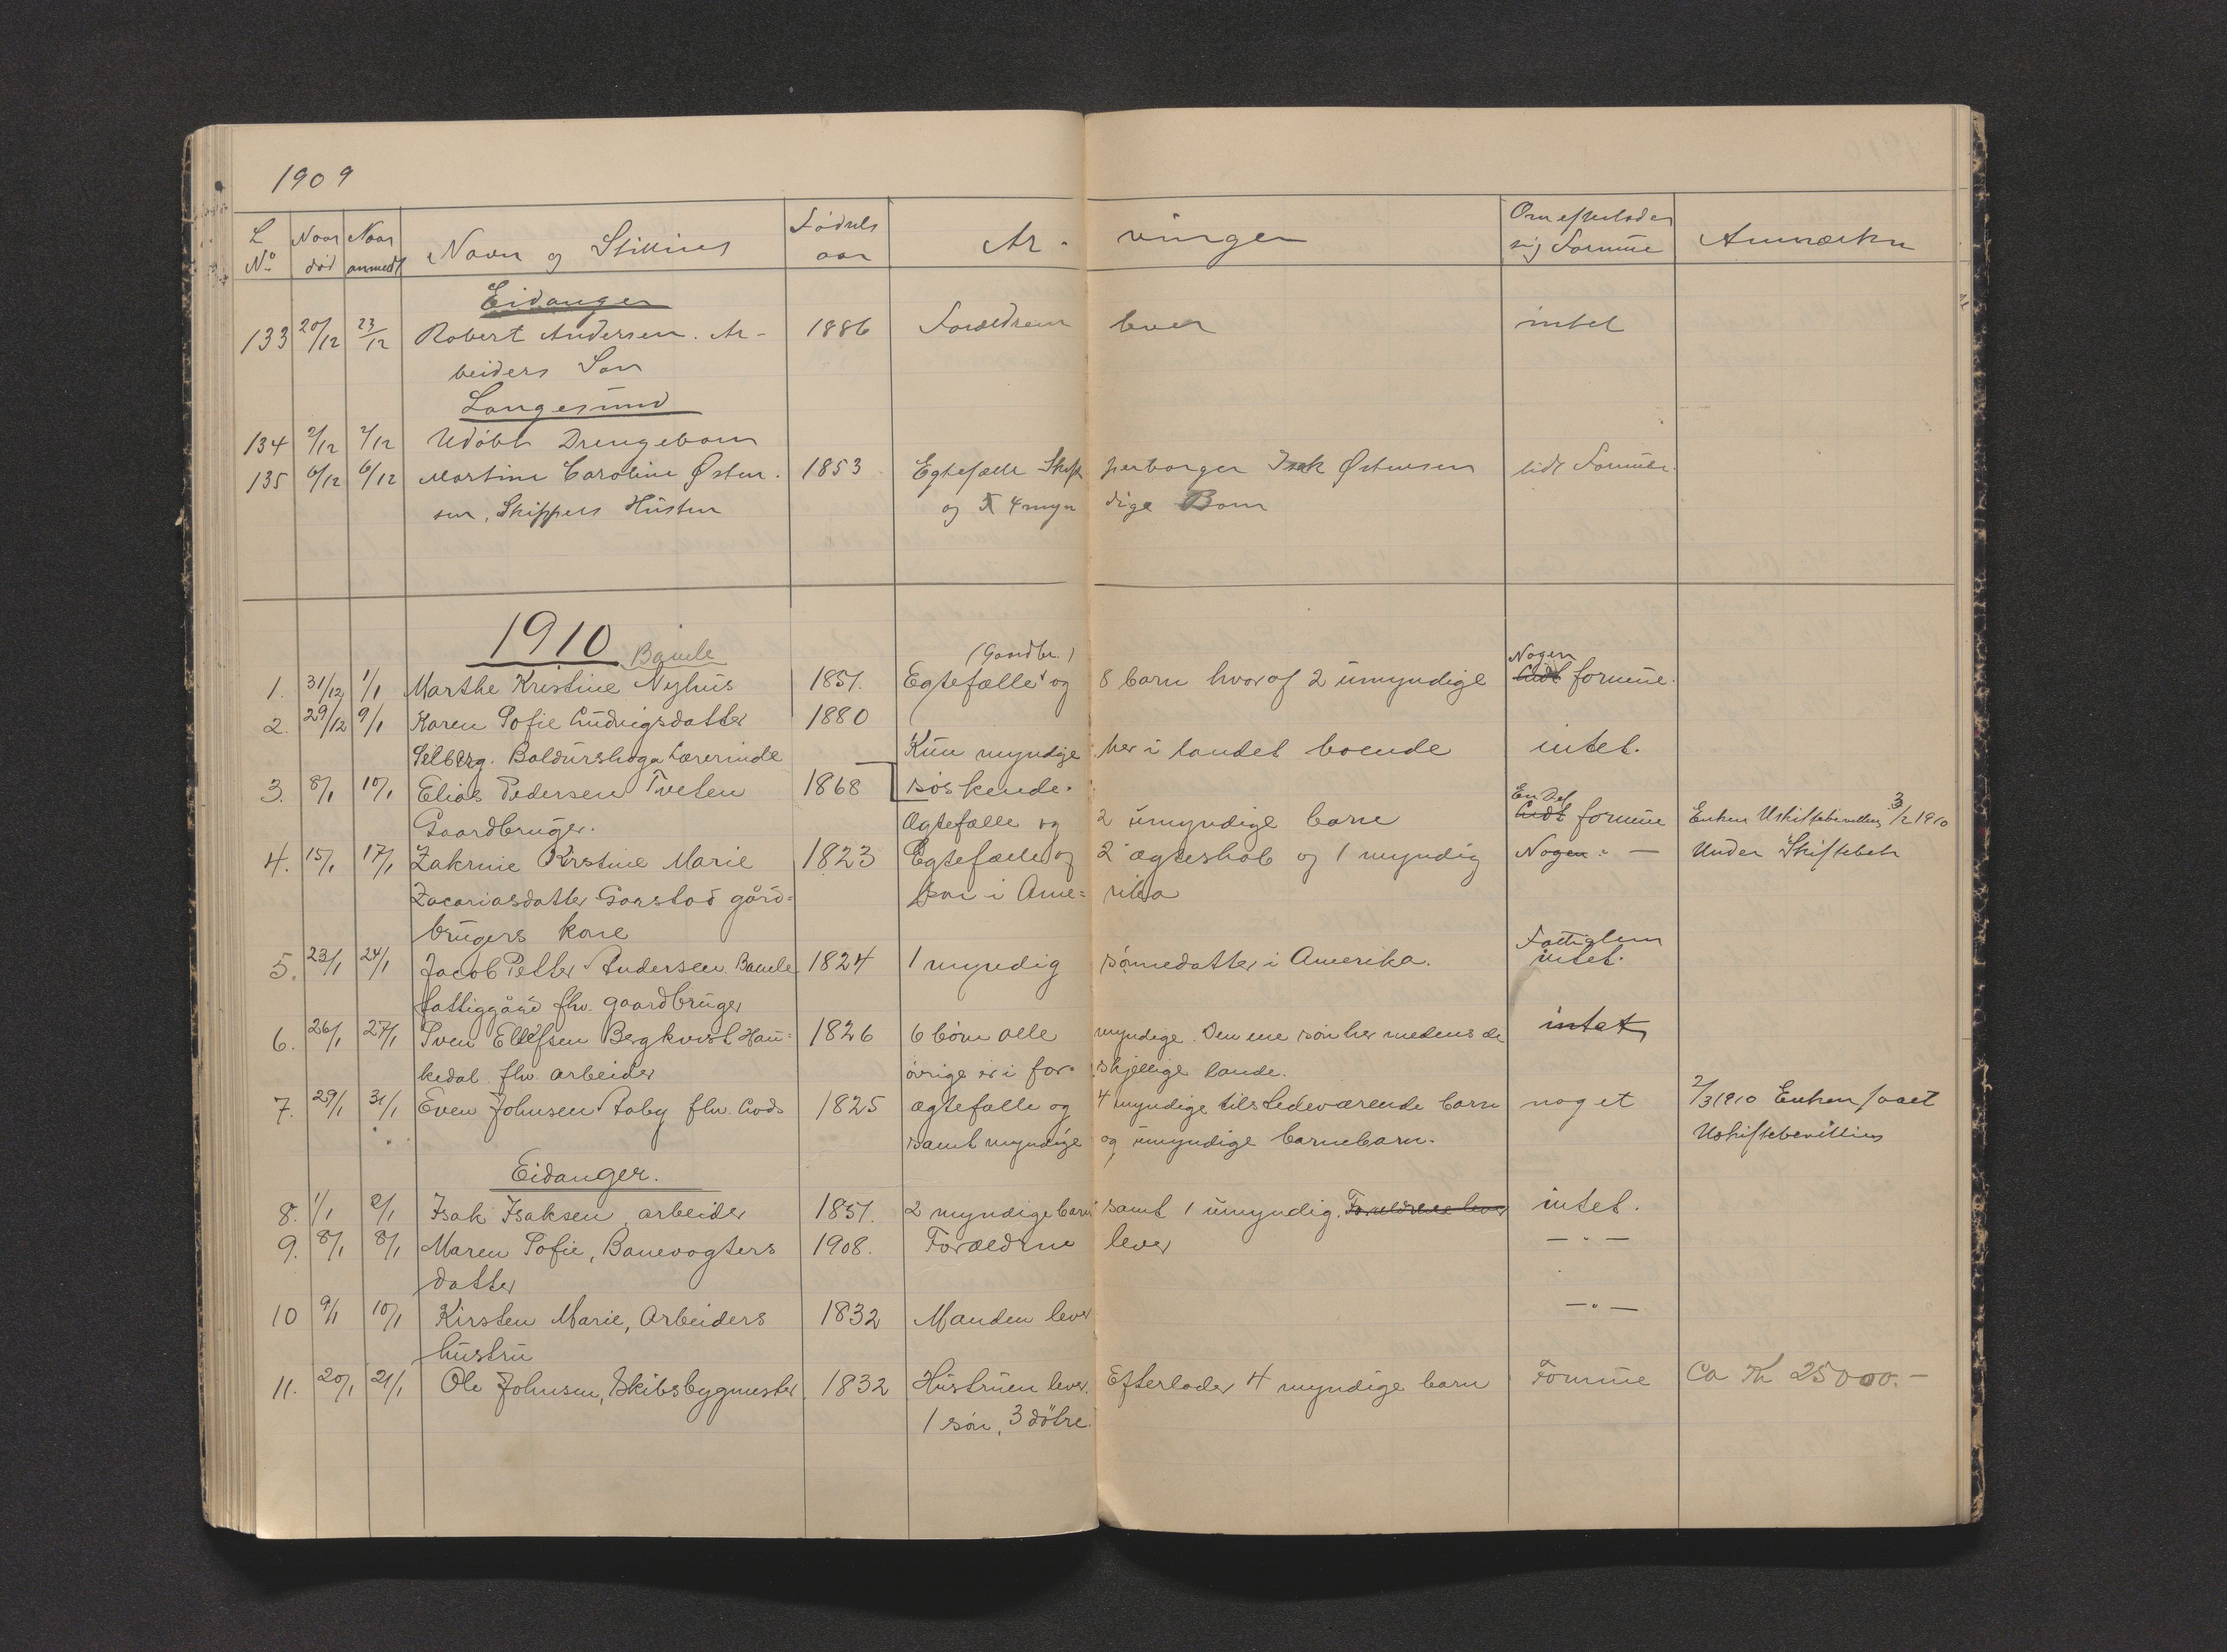 1909
L No Naar død Naar anmeldt Navn og Stilling Fødsels aar Ar- vinger Om efterlader sig Formue Anmærkn
Eidanger
133 20/12 23/12 Robert Andersen. Ar- 1886 Forældrene lever intet
beiders Søn
Langesund
134 2/12 2/12 Udøbt Drengebarn
135 6/12 6/12 Martine Caroline Østen- 1853 Egtefælle Skip perborger Isak Østensen lidt Formue.
sen, Skippers Hustru og 4 myn dige Børn
1910 Bamle
(Gaardbr.) Nogen
1. 31/12 1/1 Marthe Kristine Nyhus 1851. Egtefælle og 8 barn hvoraf 2 umyndige Lidt formue.
2. 29/12 9/1 Karen Sofie Ludvigsdatter 1880
Selberg. Baldurshoga Lærerinde Kun myndige her i landet boende intet.
3. 8/1 10/1 Elias Pedersen Tveten 1868 søskende.
En Del
Gaardbruger. Ægtefælle og 2 umyndige barn Lidt formue Enken Uskiftebevilling 3/2 1910
4. 15/1 17/1 Zakrine Kirstine Marie 1823 Egtefælle og 2 ægteskab og 1 myndig Nogen " — Under Skiftebeh
Zacariasdatter Gonstad gård- søn i Ame= rika
brugers kone
Fattiglem
5. 23/1 24/1 Jacob Petter Andersen Bamle 1824 1 myndig sønnedatter i Amerika. intet.
fattiggård fhv. gaardbruger
6. 26/1 27/1 Sven Ellefsen Bergkvist Hau= 1826 6 børn alle myndige. Den ene søn her medens de intet
kedal fhv. arbeider øvrige er i for- skjellige lande.
7. 29/1 31/1 Even Johnsen Aaby fhv. Lods 1825 ægtefælle og 4 myndige tilstedeværende barn noget 2/3 1910 Enken faaet
samt myndige og umyndige barnebarn. Uskiftebevilling
Eidanger.
8. 1/1 2/1 Isak Isaksen, arbeider 1851. 2 myndige barn samt 1 umyndig. Forældrene lever intet.
9. 8/1 8/1 Maren Sofie, Banevogters 1908. Forældrne lever — " —
datter
10 9/1 10/1 Kirsten Marie, Arbeiders 1832 Manden lever — " —
hustru
11. 20/1 21/1 Ole Johnsen, Skibsbygmester 1832 Hustruen lever. Efterlader 4 myndige barn Formue Ca Kr 25000.-
1 søn, 3 døtre.